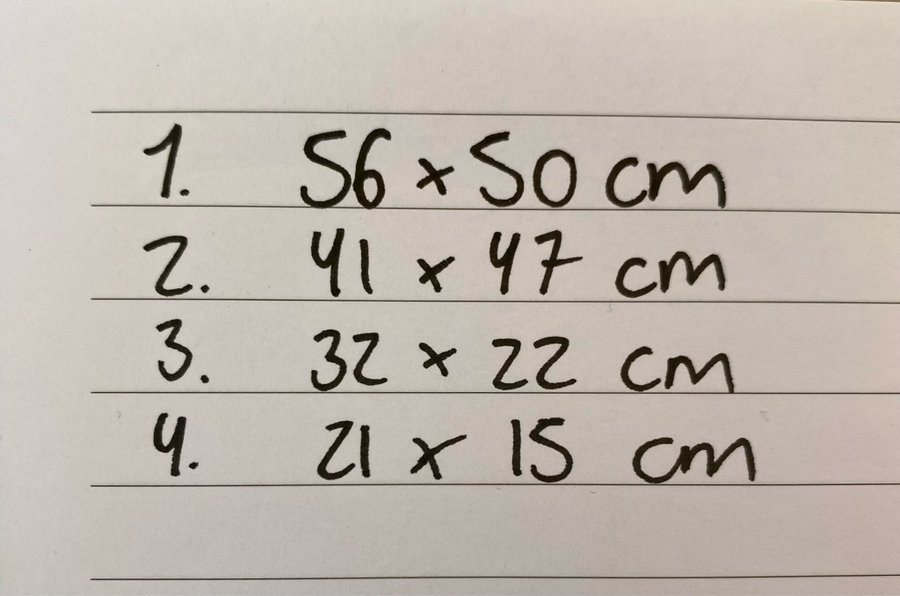 1. 56 x 50 cm
2. 41 x 47 cm
3. 32 x 22 cm
4. 21 x 15 cm